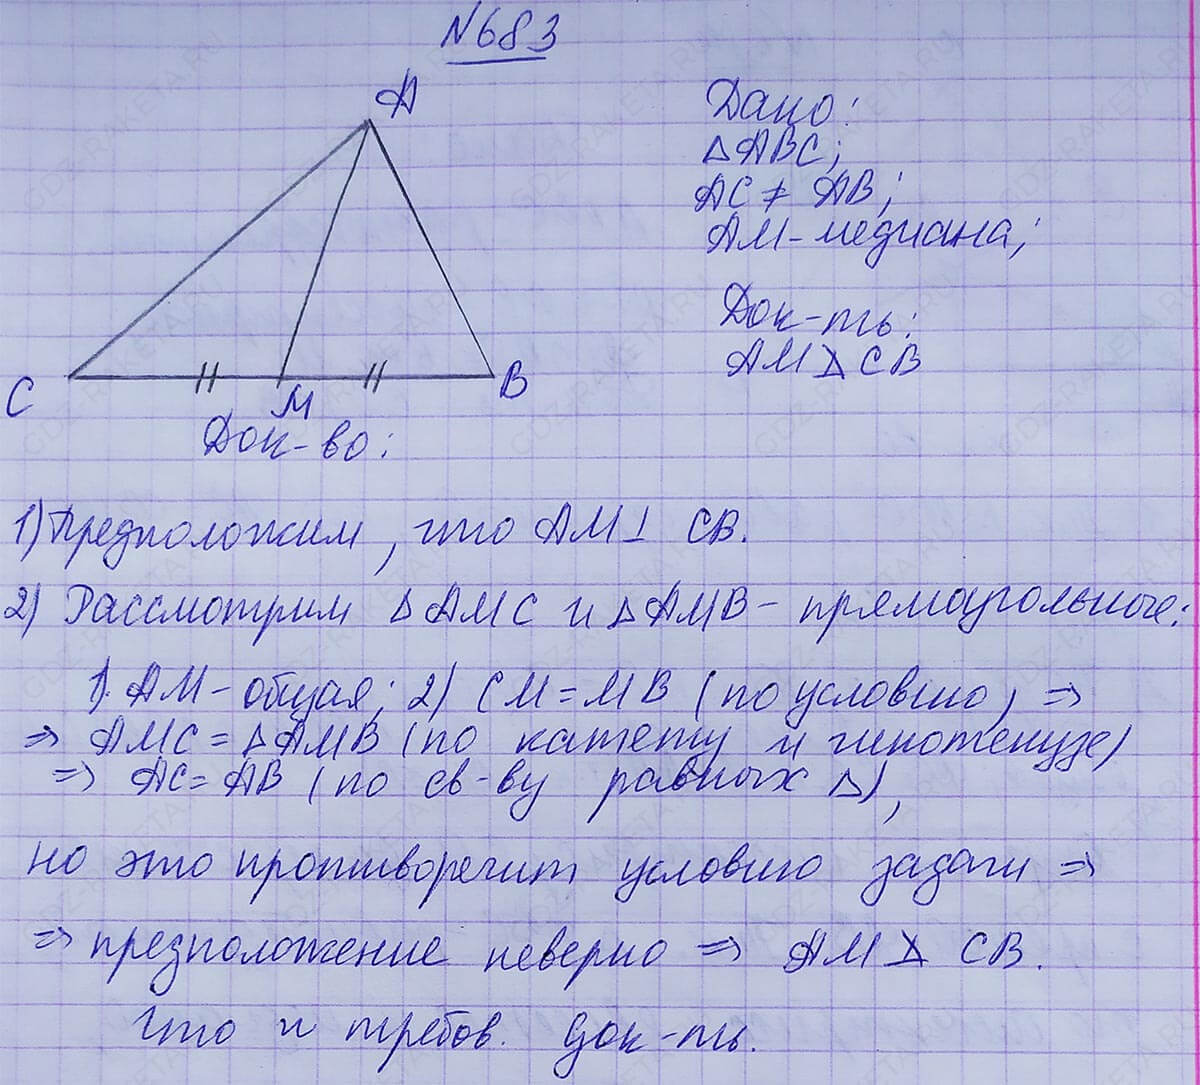 N683
A
C
M
B
Дано:
△ABC;
AC ≠ AB;
AM-медиана;
Док-ть:
AM ⊥̸ CB
Док-во:
1) Предположим, что AM ⊥ CB.
2) Рассмотрим △AMC и △AMB - прямоугольные:
1. AM - общая; 2) CM = MB (по условию) ⇒
⇒ AMC = △AMB (по катету и гипотенузе)
⇒ AC = AB (по св-ву равных △),
но это противоречит условию задачи ⇒
⇒ предположение неверно ⇒ AM ⊥̸ CB.
Что и требов. док-ть.
GDZ-RAKETA.RU